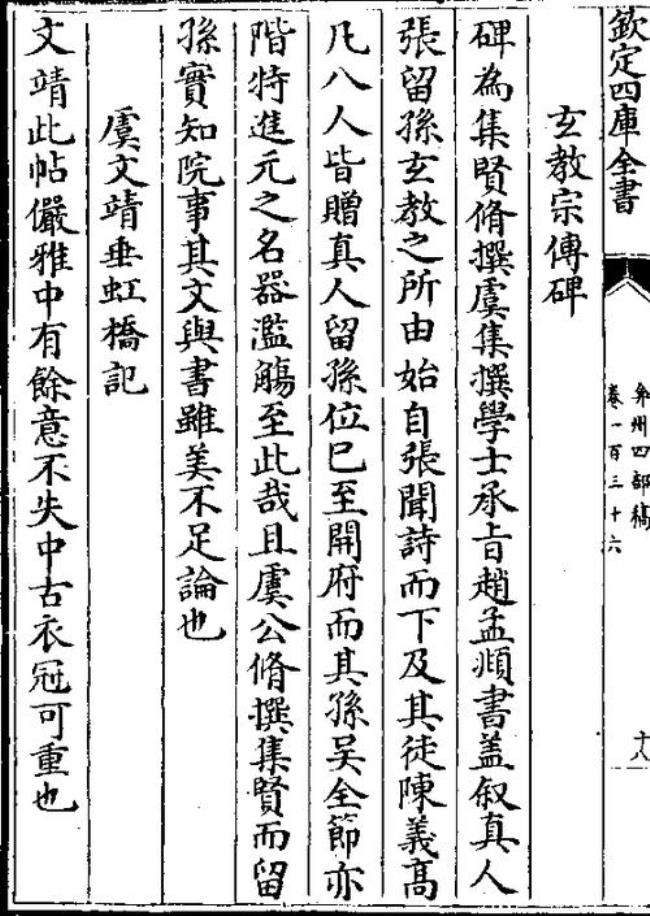 欽定四庫全書
弇州四部稿
卷一百三十六
十八
玄教宗傳碑
碑為集賢脩撰虞集撰學士承旨趙孟頫書盖叙真人
張留孫玄教之所由始自張聞詩而下及其徒陳義高
凡八人皆贈真人留孫位已至開府而其孫吴全節亦
階特進元之名器濫觴至此哉且虞公脩撰集賢而留
孫實知院事其文與書雖美不足論也
虞文靖垂虹橋記
文靖此帖儼雅中有餘意不失中古衣冠可重也